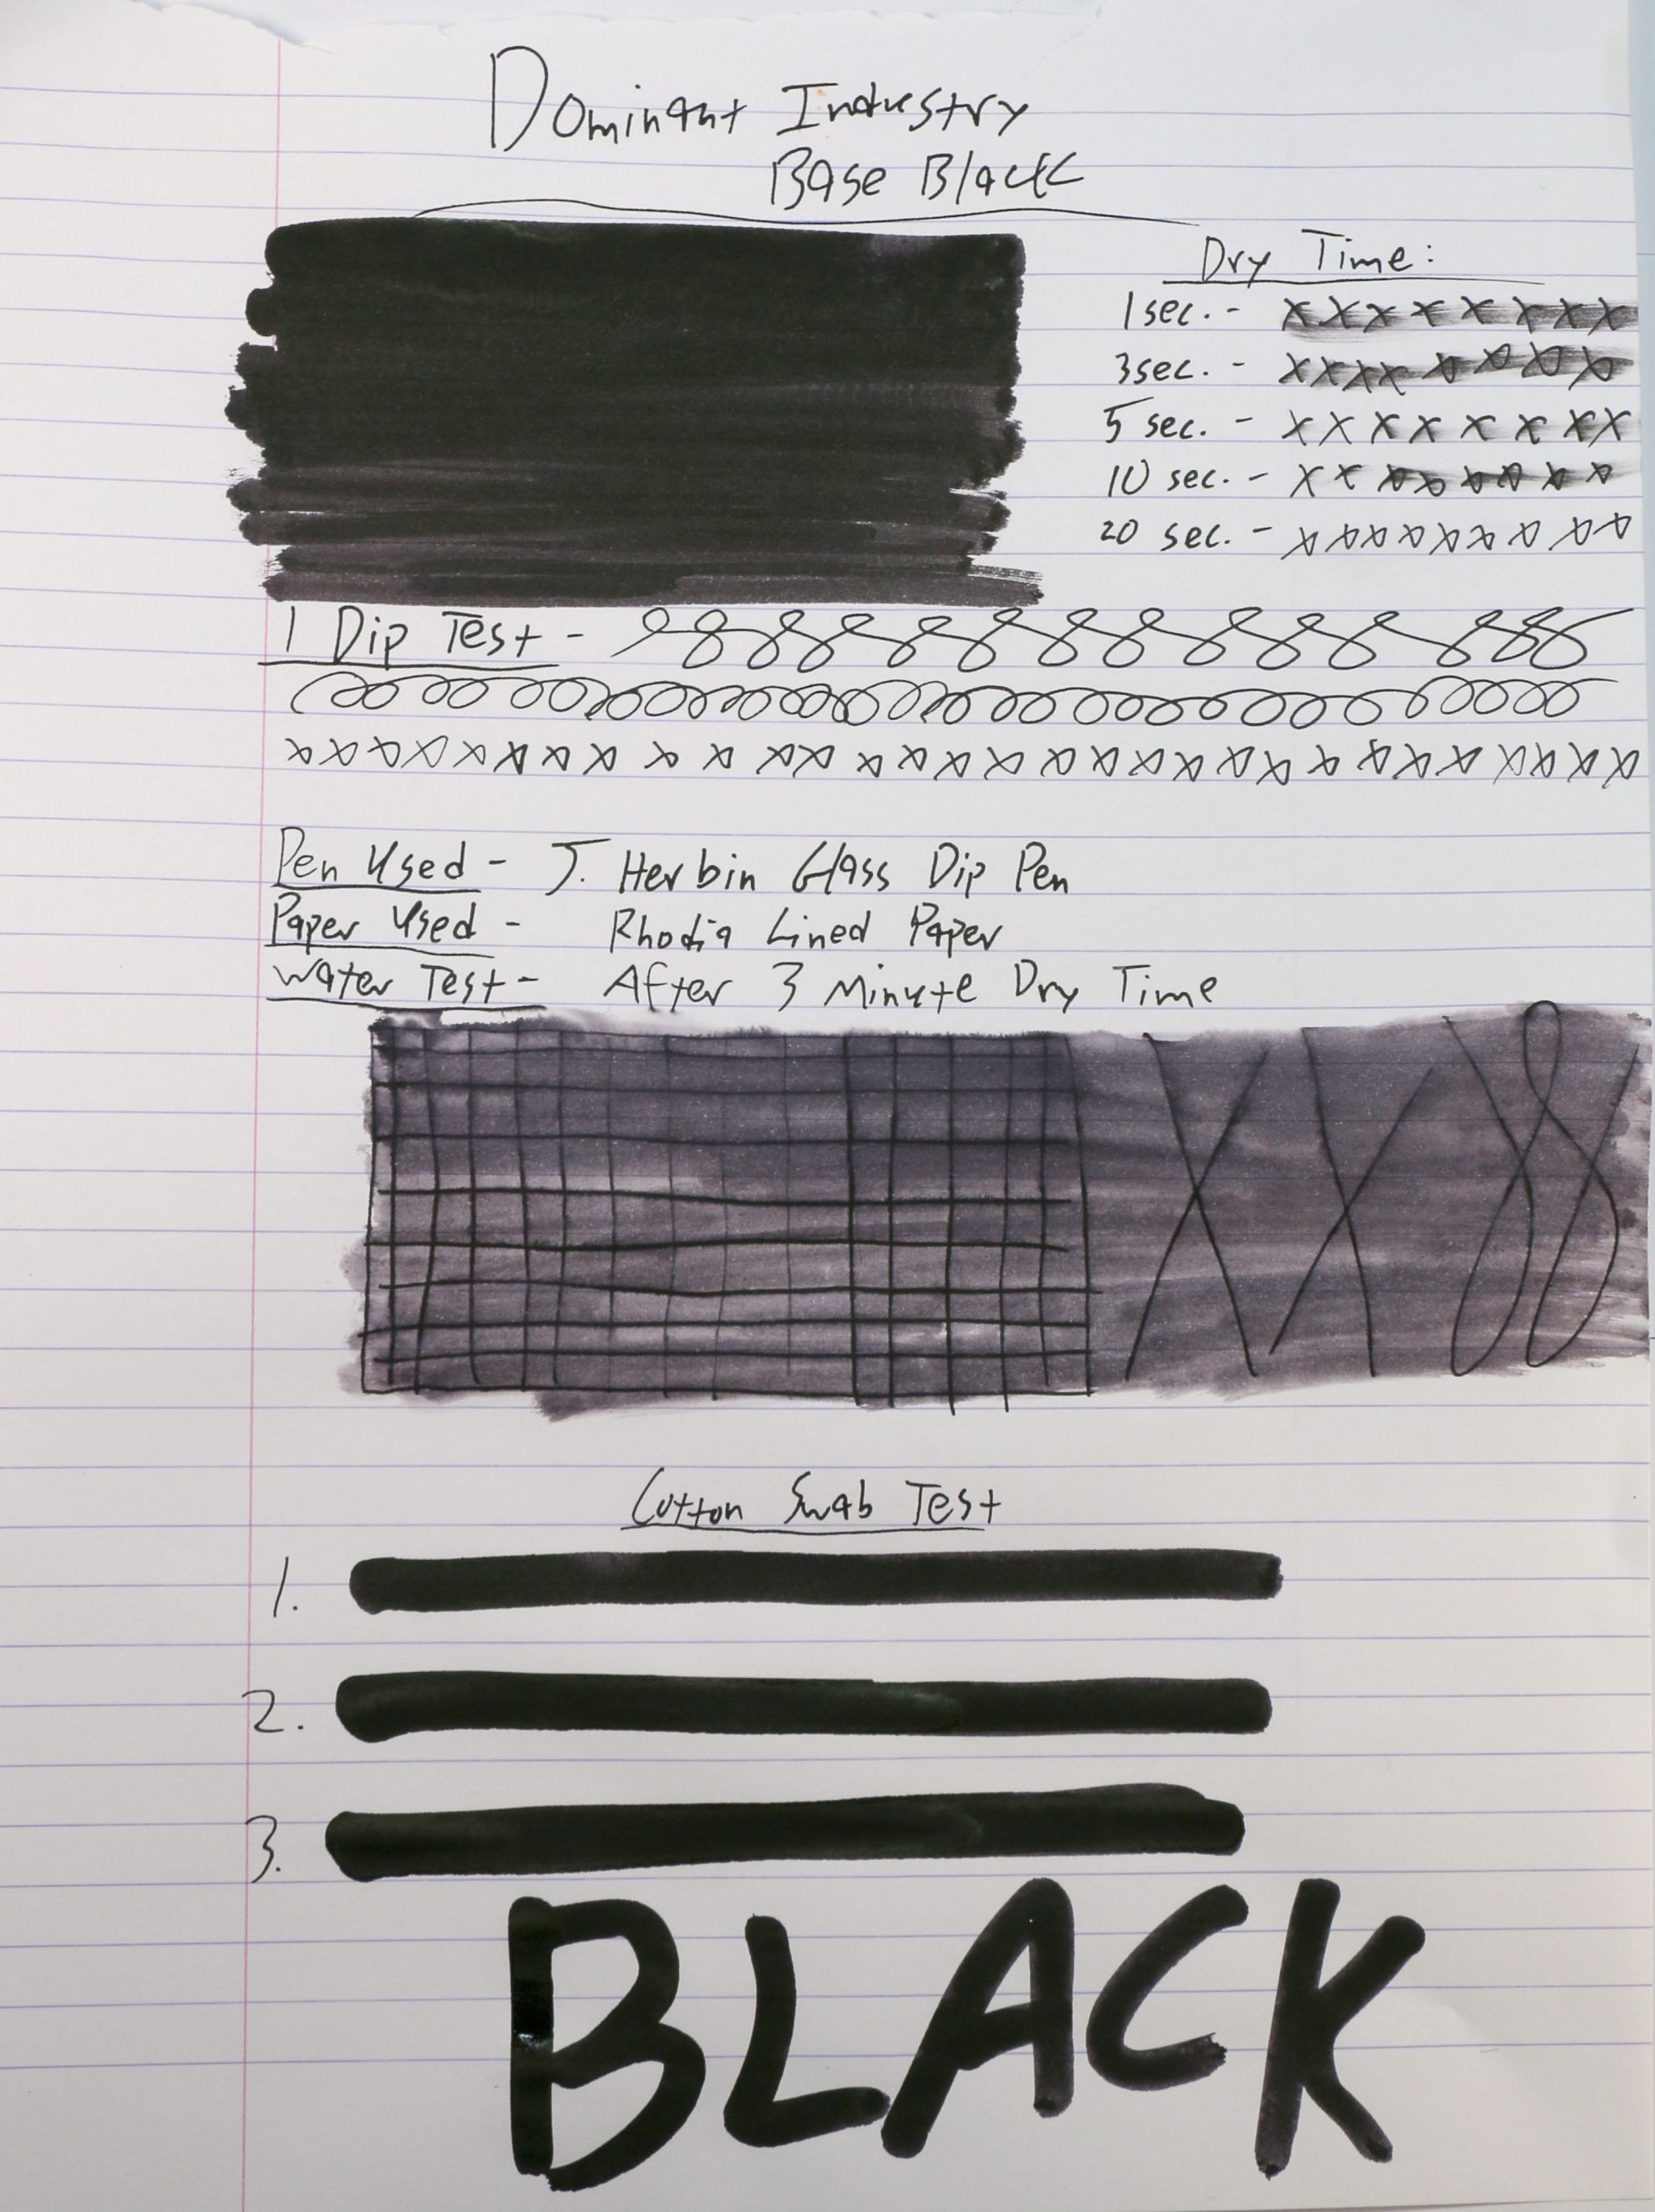 Dominant Industry
Base Black
Dry Time:
1 sec. - x x x x x x x x
3 sec. - x x x x x x x x
5 sec. - x x x x x x x x
10 sec. - x x x x x x x x
20 sec. - x x x x x x x x x
1 Dip Test -
x x x x x x x x x x x x x x x x x x x x x x x x x x x x x x x
Pen Used - J. Herbin Glass Dip Pen
Paper Used - Rhodia Lined Paper
Water Test - After 3 Minute Dry Time
Cotton Swab Test
1.
2.
3.
BLACK